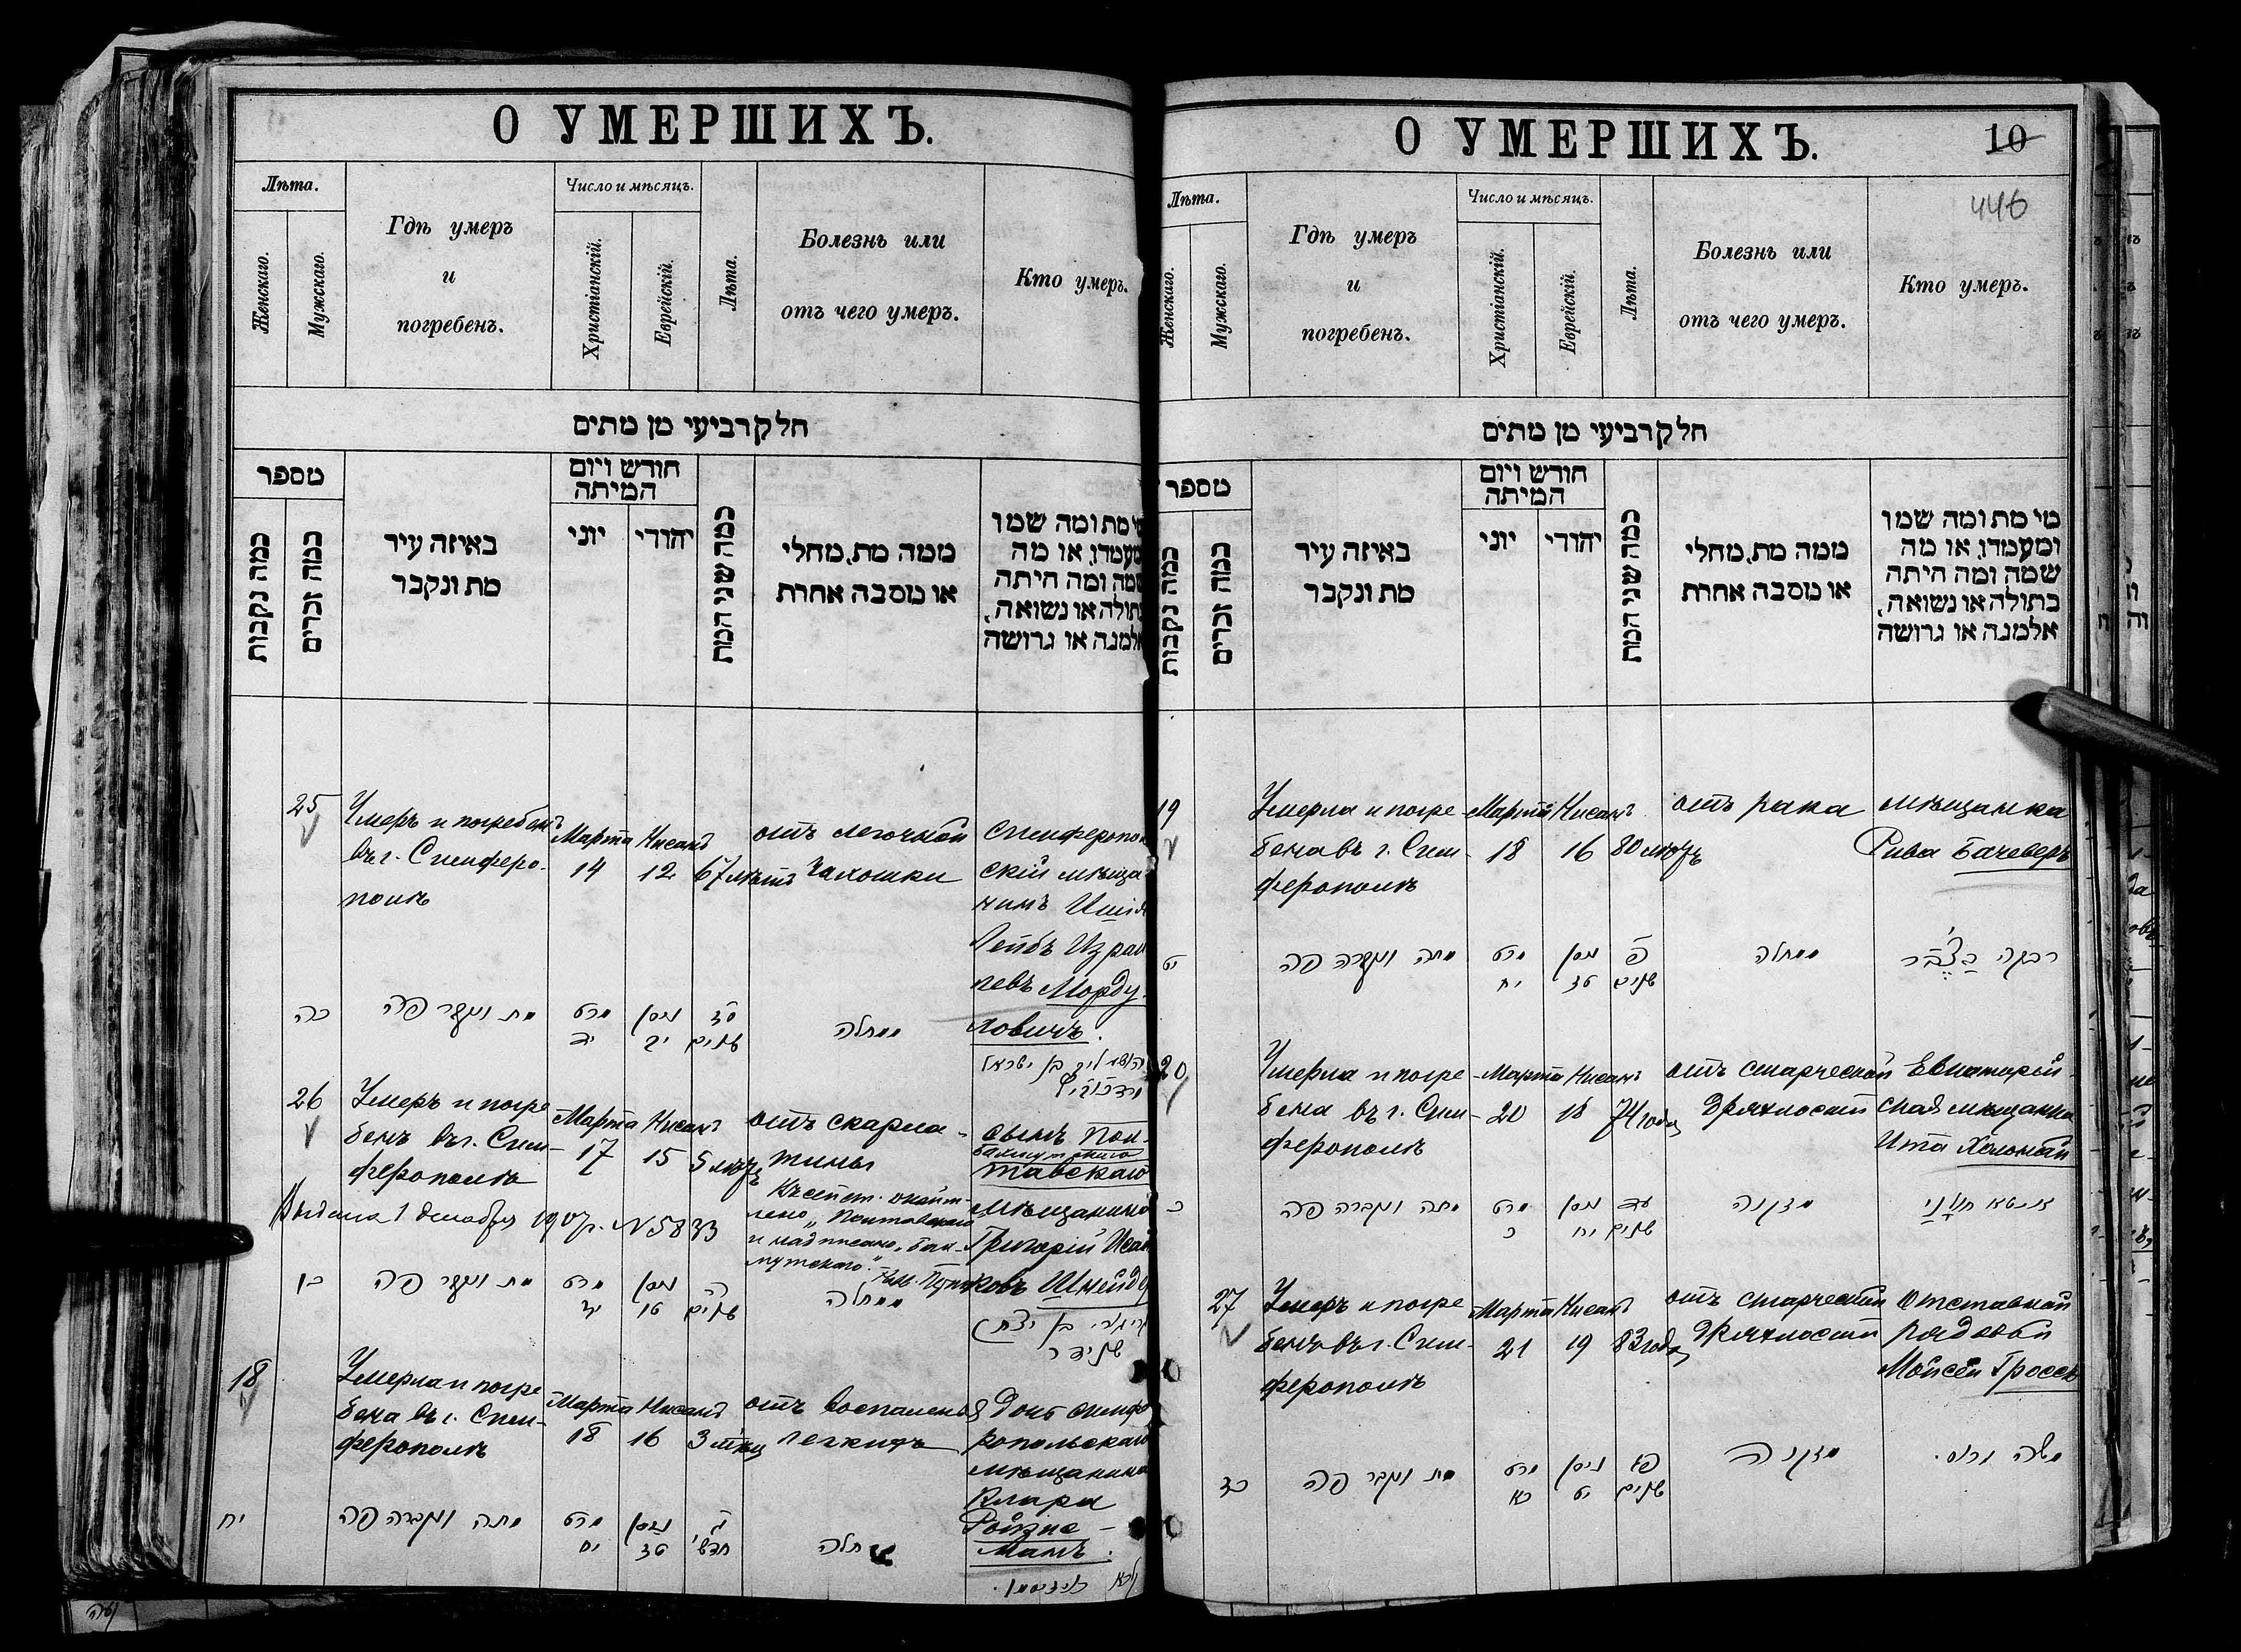 О УМЕРШИХЪ.
Лѣта.
Женскаго.
Мужскаго.
Гдѣ умеръ
и
погребенъ.
Число и мѣсяцъ.
Христіанскій.
Еврейскій.
Лѣта.
Болезнь или
отъ чего умеръ.
Кто умеръ.
חלק רביעי מן מתים
מספר
כמה נקבות
כמה זכרים
באיזה עיר
מת ונקבר
חודש ויום
המיתה
יוני
יהודי
כמה שני המת
ממה מת, מחלי
או מסבה אחרת
מת ומה שמו
או מה
ומה היתה
או נשואה,
או גרושה
25
Умеръ и погребенъ
въ г. Симферо-
полѣ
Марта
14
Нисанъ
12
67 лѣтъ
отъ легочной
чахотки
Симферопол
скій мѣща
нинъ
Лейбъ Израи
левъ Морду-
ховичъ.
כה
מת ונקבר פה
מרט
יד
ניסן
יב
סז
שנים
מחלה
בן ישראל
26
Умеръ и погре
бенъ въ г. Сим-
ферополѣ
Марта
17
Нисанъ
15
5 лѣтъ
отъ скарла-
тины
сынъ Пол-
Бахмутскаго
тавскаго
мѣщанина
Григорій Исаа
ковъ Шнейд
Выдана 1 декабря 1907 г. № 5833
лено „Полтавскаго
и надписано „Бах-
мутскаго".
כו
מת ונקבר פה
מרט
יז
ניסן
טו
ה
שנים
מחלה
בן יצחק
שניידר
18
Умерла и погре
бена въ г. Сим-
ферополѣ
Марта
18
Нисанъ
16
3 мѣсц
отъ воспаленія
легкихъ
Дочь симфе
ропольскаго
мѣщанина
Клара
Ройзе-
манъ.
יח
מתה ונקברה פה
מרט
יח
ניסן
טז
ג
חדשי
מחלה
О УМЕРШИХЪ.
10
446
Лѣта.
Женскаго.
Мужскаго.
Гдѣ умеръ
и
погребенъ.
Число и мѣсяцъ.
Христіанскій.
Еврейскій.
Лѣта.
Болезнь или
отъ чего умеръ.
Кто умеръ.
חלק רביעי מן מתים
מספר
כמה נקבות
כמה זכרים
באיזה עיר
מת ונקבר
חודש ויום
המיתה
יוני
יהודי
כמה שני המת
ממה מת, מחלי
או מסבה אחרת
מי מת ומה שמו
ומעמדו, או מה
שמה ומה היתה
בתולה או נשואה,
אלמנה או גרושה
19
Умерла и погре
бена въ г. Сим-
ферополѣ
Марта
18
Нисанъ
16
80 лѣтъ
отъ рака
мѣщанка
Рива Бачеверъ
יט
מתה ונקברה פה
מרט
יח
ניסן
טז
פ
שנים
מחלה
רבקה
20
Умерла и погре
бена въ г. Сим-
ферополѣ
Марта
20
Нисанъ
18
74 года
отъ старческой
дряхлости
Евпаторій-
ская мѣщанка
Ита
כ
מתה ונקברה פה
מרט
כ
ניסן
יח
עד
שנים
מזקנה
27
Умеръ и погре
бенъ въ г. Сим-
ферополѣ
Марта
21
Нисанъ
19
83 года
отъ старческой
дряхлости
Отставной
рядовой
Мойсей Гроссъ
כז
מת ונקבר פה
מרט
כא
ניסן
יט
פג
שנים
מזקנה
משה גרוס.